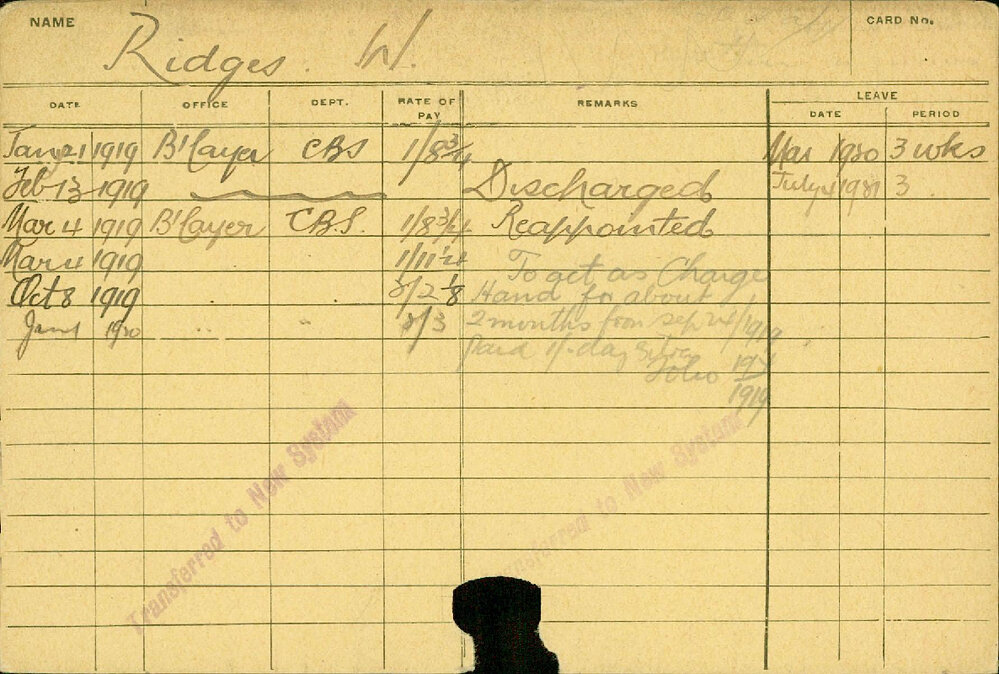 NAME Ridges. W. CARD No.
DATE OFFICE DEPT. RATE OF PAY REMARKS LEAVE
DATE PERIOD
Jan 21 1919 B'layer CBS 1/8 3/4 Mar 1920 3 wks
Feb 13 1919 Discharged July 1921 3
Mar 4 1919 B'layer C.B.S. 1/8 3/4 Reappointed
Mar 4 1919 1/11 1/4 To act as Charge
Oct 8 1919 2/2 1/8 Hand for about
Jan 1 1920 " " 2/3 2 months from Sep 24/1919
paid 1/- day
Folio
1919
Transferred to New System
Transferred to New System